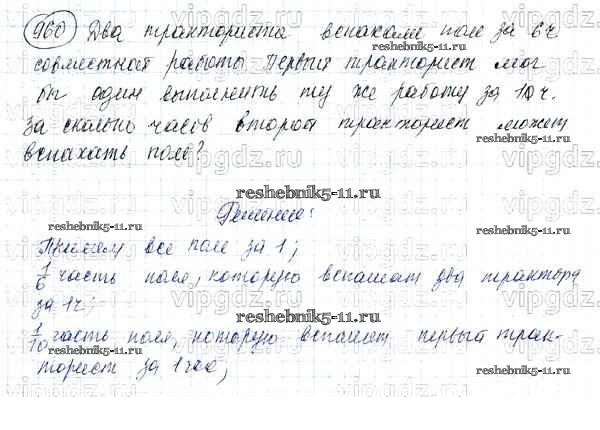 960 Два тракториста вспахали поле за 6ч
совместной работы. Первый тракторист мог
бы один выполнить ту же работу за 10 ч.
За сколько часов второй тракторист может
вспахать поле?
Решение:
Примем все поле за 1;
1/6 часть поля, которую вспашат два трактора
за 1ч;
1/10 часть поля, которую вспашет первый трак-
торист за 1 час;
reshebnik5-11.ru
vipgdz.ru